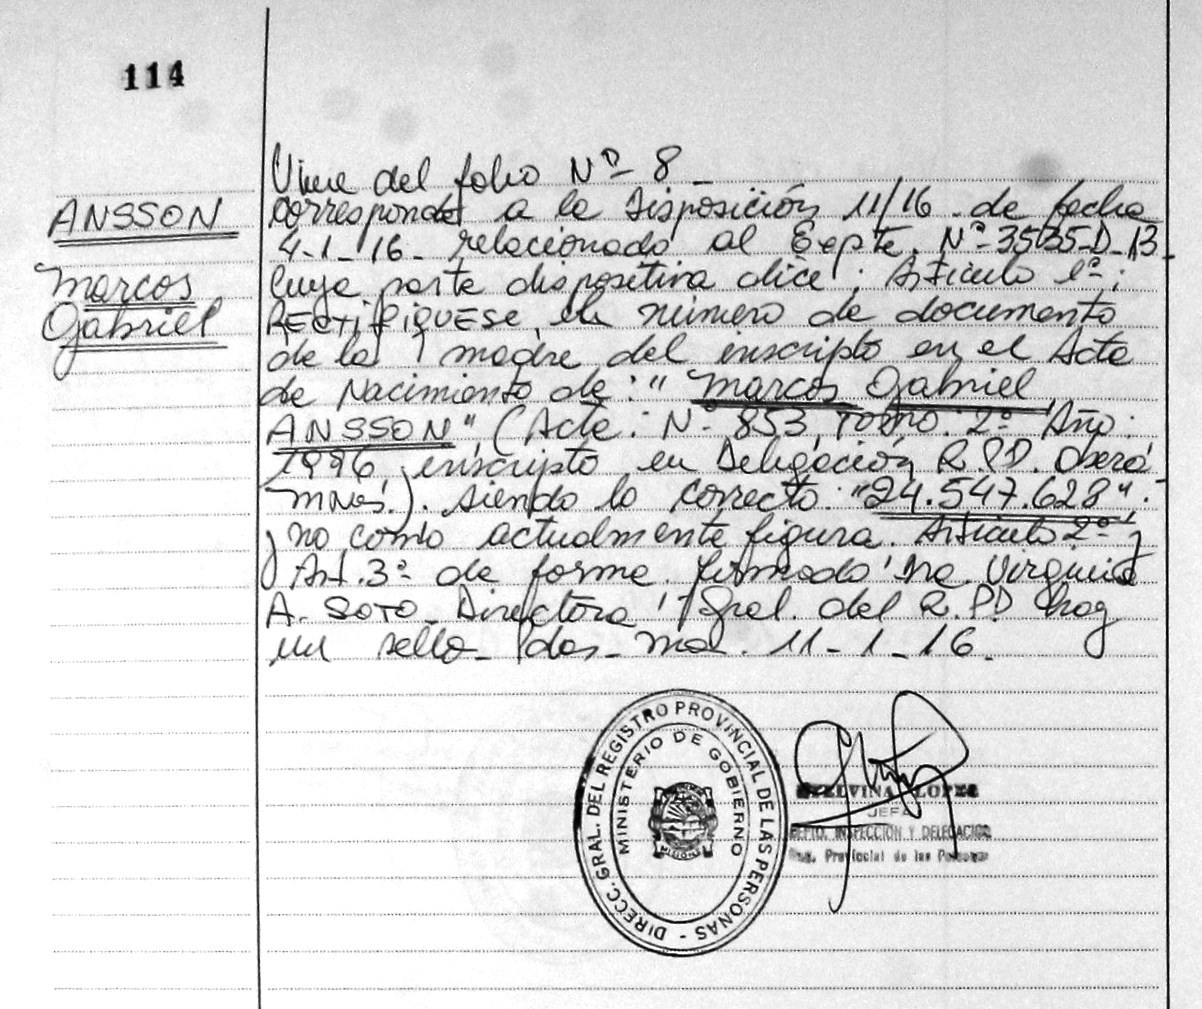 114
ANSSON
Marcos
Gabriel
Viene del folio Nº- 8 -
corresponde a la Disposición 11/16 - de fecha
4-1-16- relacionado al Expte. Nº-3535-D-13-
Cuya parte dispositiva dice: Artículo 1º:
RECTIFIQUESE, el número de documento
de la madre del inscripto en el Acta
de Nacimiento de: "Marcos Gabriel
ANSSON", (Acta: Nº- 853, Tomo: 2º Año:
1996, inscripto en Delegación R.P.D. Oberá
Mnes.). siendo lo correcto: "24.547.628".-
y no como actualmente figura. Artículo 2º y
Art. 3º de forma. Firmado: Dra. Virginia
A. SOTO. Directora Gral. del R.P.D. hay
un sello. Pdas. Mnes. 11-1-16.
DIRECC. GRAL. DEL REGISTRO PROVINCIAL DE LAS PERSONAS -
MINISTERIO DE GOBIERNO
MISIONES
LOPEZ
JEFA
DEPTO. INSPECCION Y DELEGACION
Reg. Provincial de las Personas